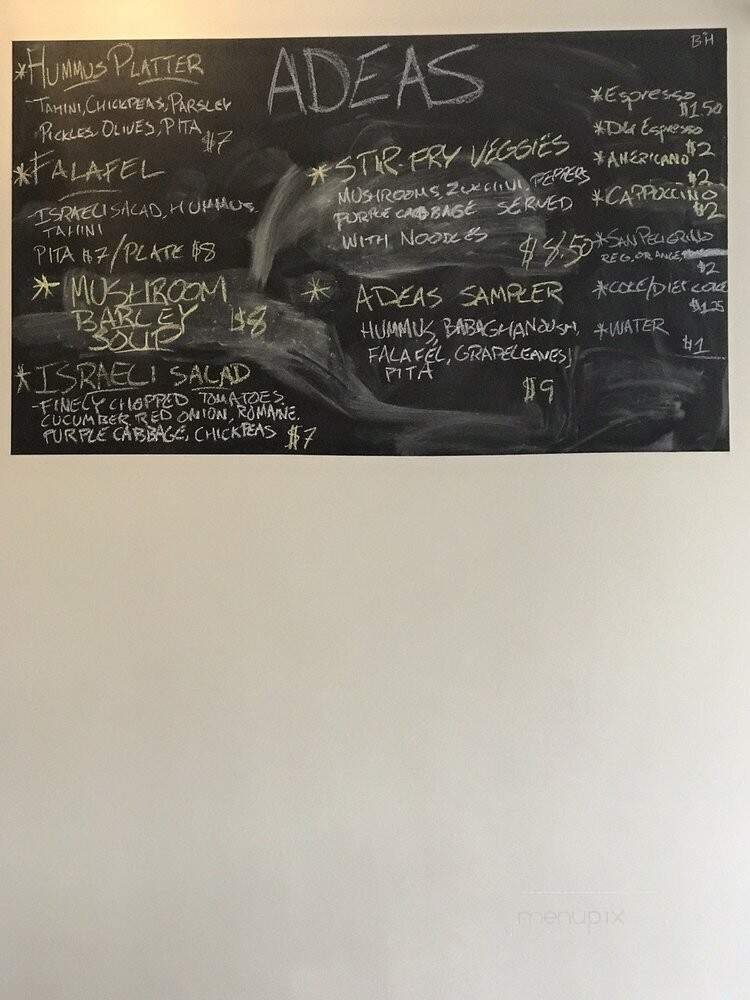 ADEAS
BH
*HUMMUS PLATTER
-TAHINI, CHICKPEAS, PARSLEY
PICKLES, OLIVES, PITA $7
*FALAFEL
ISRAELI SALAD, HUMMUS,
TAHINI
PITA $7/PLATE $8
* MUSHROOM
BARLEY $8
SOUP
*ISRAELI SALAD
-FINELY CHOPPED TOMATOES,
CUCUMBER, RED ONION, ROMAINE,
PURPLE CABBAGE, CHICKPEAS $7
*STIR-FRY VEGGIES
MUSHROOMS, ZUCCINI, PEPPERS
PURPLE CABBAGE SERVED
WITH NOODLES $8.50
* ADEAS SAMPLER
HUMMUS, BABAGHANOUSH,
FALAFEL, GRAPELEAVES,
PITA
$9
*Espresso
$1.50
*Dbl Espresso
$2
*AMERICANO
$2
*CAPPUCCINO
$2
*SAN PELIGRINO
REG, ORANGE,
$2
*COKE/DIET COKE
$1.25
*WATER
$1
menupix